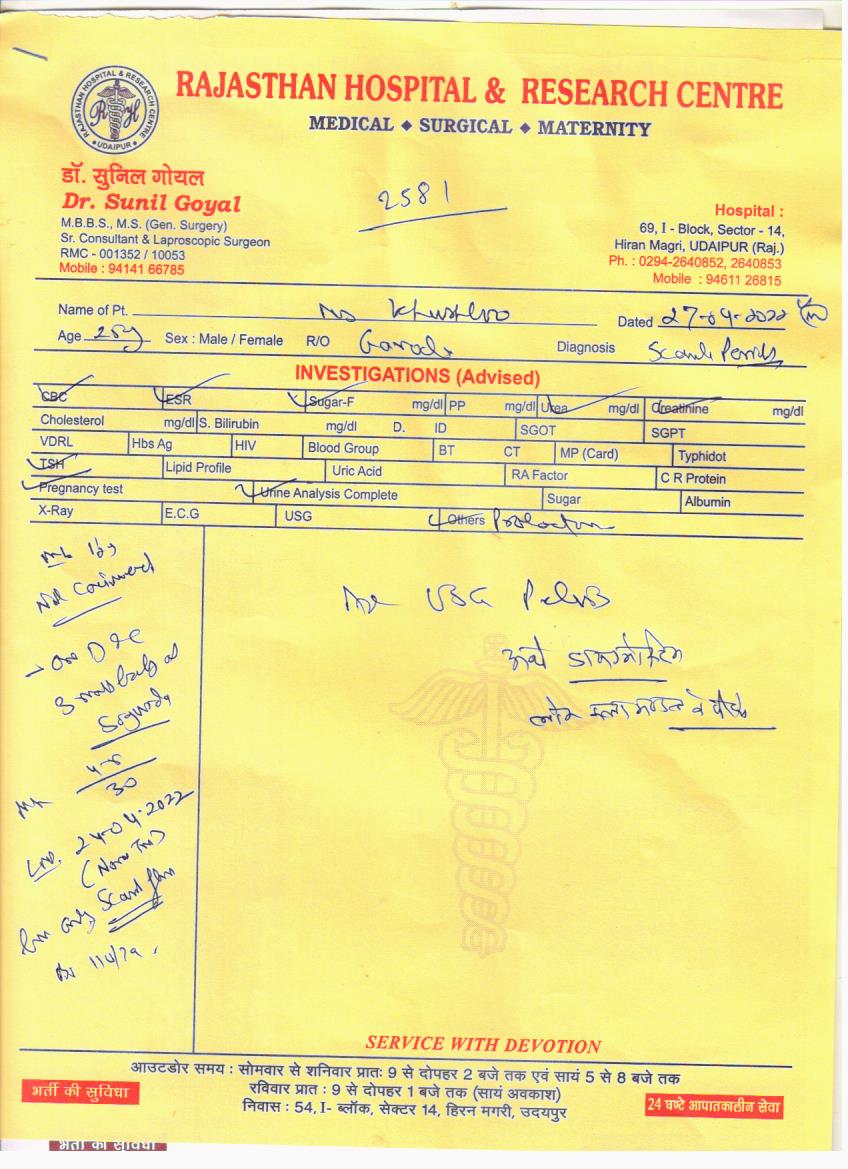 RAJASTHAN HOSPITAL & RESEARCH CENTRE
UDAIPUR
RAJASTHAN HOSPITAL & RESEARCH CENTRE
MEDICAL ◆ SURGICAL ◆ MATERNITY
डॉ. सुनिल गोयल
Dr. Sunil Goyal
M.B.B.S., M.S. (Gen. Surgery)
Sr. Consultant & Laproscopic Surgeon
RMC - 001352 / 10053
Mobile : 94141 66785
2581
Hospital :
69, I - Block, Sector - 14,
Hiran Magri, UDAIPUR (Raj.)
Ph. : 0294-2640852, 2640853
Mobile : 94611 26815
Name of Pt. Khushboo Dated 27-04-2022
Age Sex : Male / Female R/O Diagnosis Scanti Periods
INVESTIGATIONS (Advised)
CBC ESR Sugar-F mg/dl PP mg/dl Urea mg/dl Creatinine mg/dl
Cholesterol mg/dl S. Bilirubin mg/dl D. ID SGOT SGPT
VDRL Hbs Ag HIV Blood Group BT CT MP (Card) Typhidot
TSH Lipid Profile Uric Acid RA Factor C R Protein
Pregnancy test Urine Analysis Complete Sugar Albumin
X-Ray E.C.G USG Others Prolactin
Not Concieved
USG Pelvis
Sagwada
30
24-04-2022
110/70
SERVICE WITH DEVOTION
आउटडोर समय : सोमवार से शनिवार प्रातः 9 से दोपहर 2 बजे तक एवं सायं 5 से 8 बजे तक
भर्ती की सुविधा
रविवार प्रात : 9 से दोपहर 1 बजे तक (सायं अवकाश)
निवास : 54, I- ब्लॉक, सेक्टर 14, हिरन मगरी, उदयपुर
24 घण्टे आपातकालीन सेवा
भर्ती की सुविधा